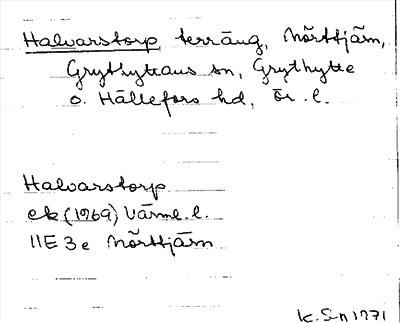 Halvarstorp, terräng, Mörttjärn,
Grythyttans sn, Grythytte
o. Hällefors hd, Ör. l.
Halvarstorp
ek (1969) Värml. l.
11E 3e Mörttjärn
K. S-n 1971